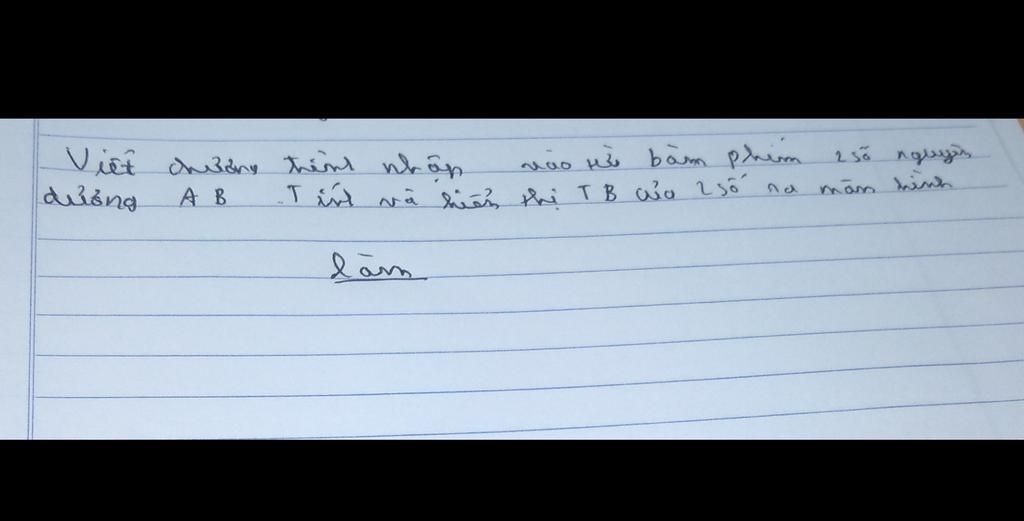 Viết chương trình nhập vào từ bàm phím 2 số nguyên
dương A B . Tính và hiển thị TB của 2 số ra màn hình
làm